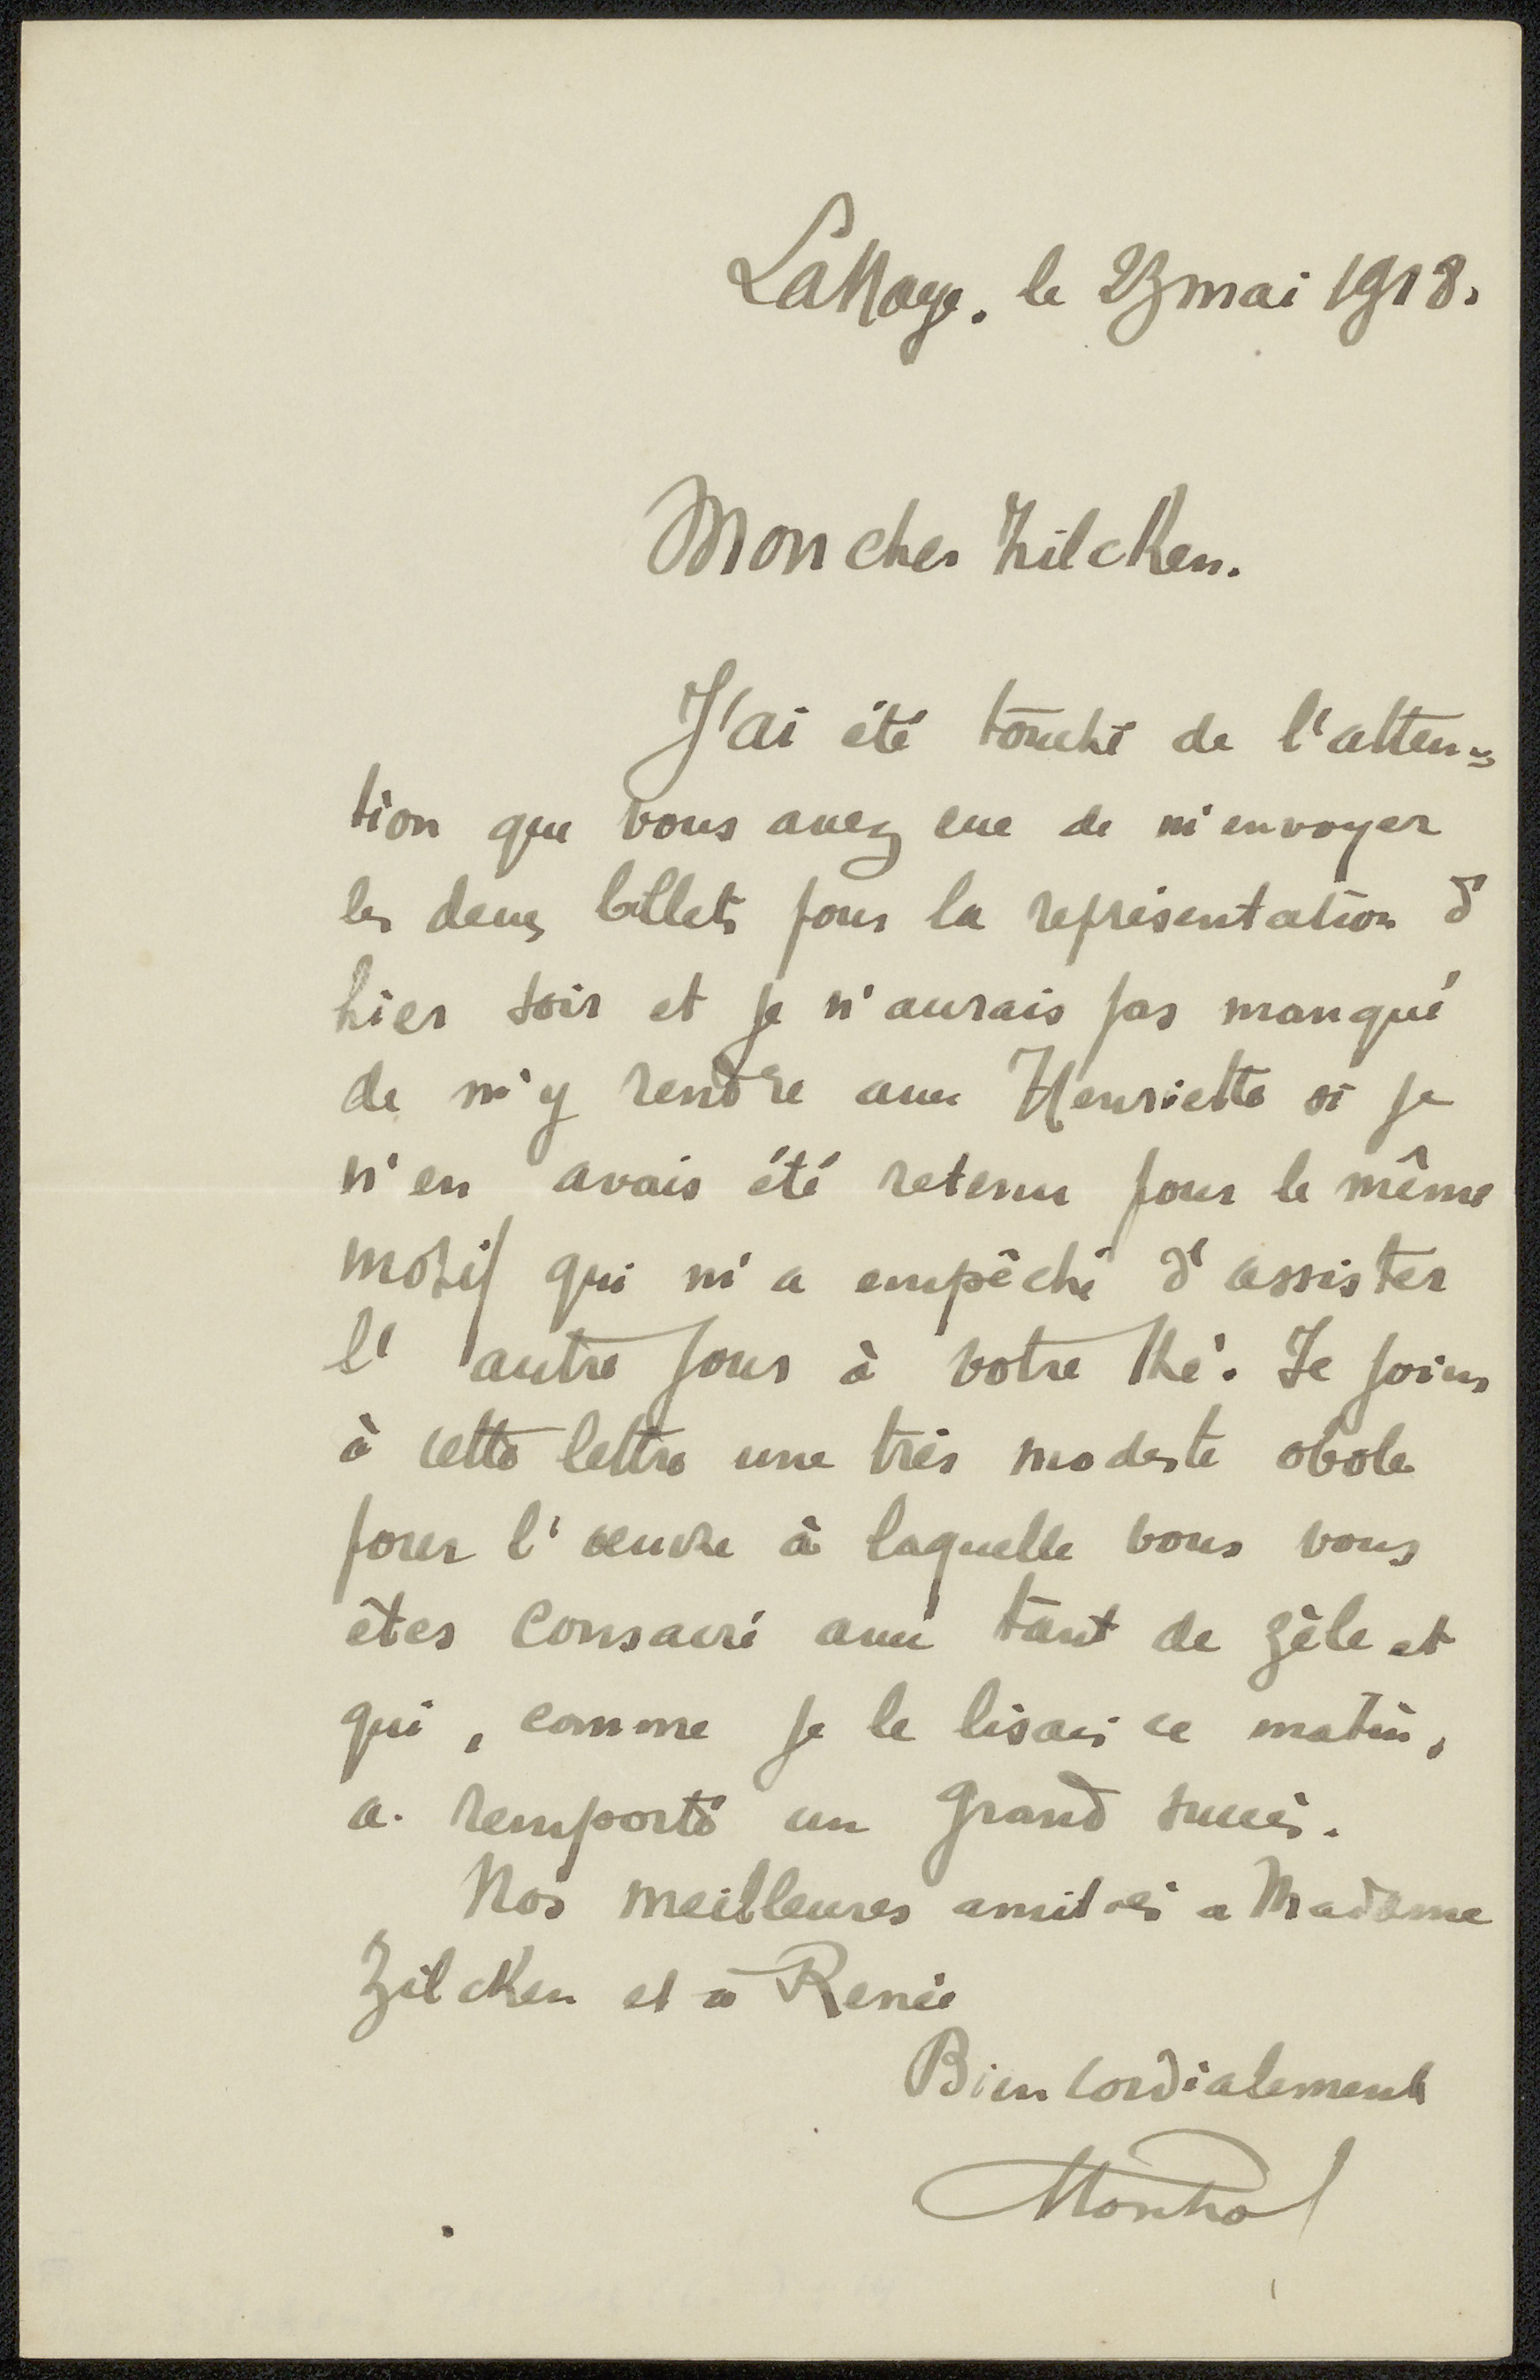 La Haye. le 23 mai 1918.
Mon cher Zilcken.
J'ai été touché de l'atten=
tion que vous avez eue de m'envoyer
les deux billets pour la représentation d'
hier soir et je n'aurais pas manqué
de m'y rendre avec Henriette si je
n'en avais été retenu pour le même
motif qui m'a empêché d'assister
l'autre jour à votre thé. Je joins
à cette lettre une très modeste obole
pour l'oeuvre à laquelle vous vous
êtes consacré avec tant de zèle et
qui, comme je le lisais ce matin,
a remporté un grand succès.
Nos meilleures amitiés a Madame
Zilcken et à Renée
Bien cordialement